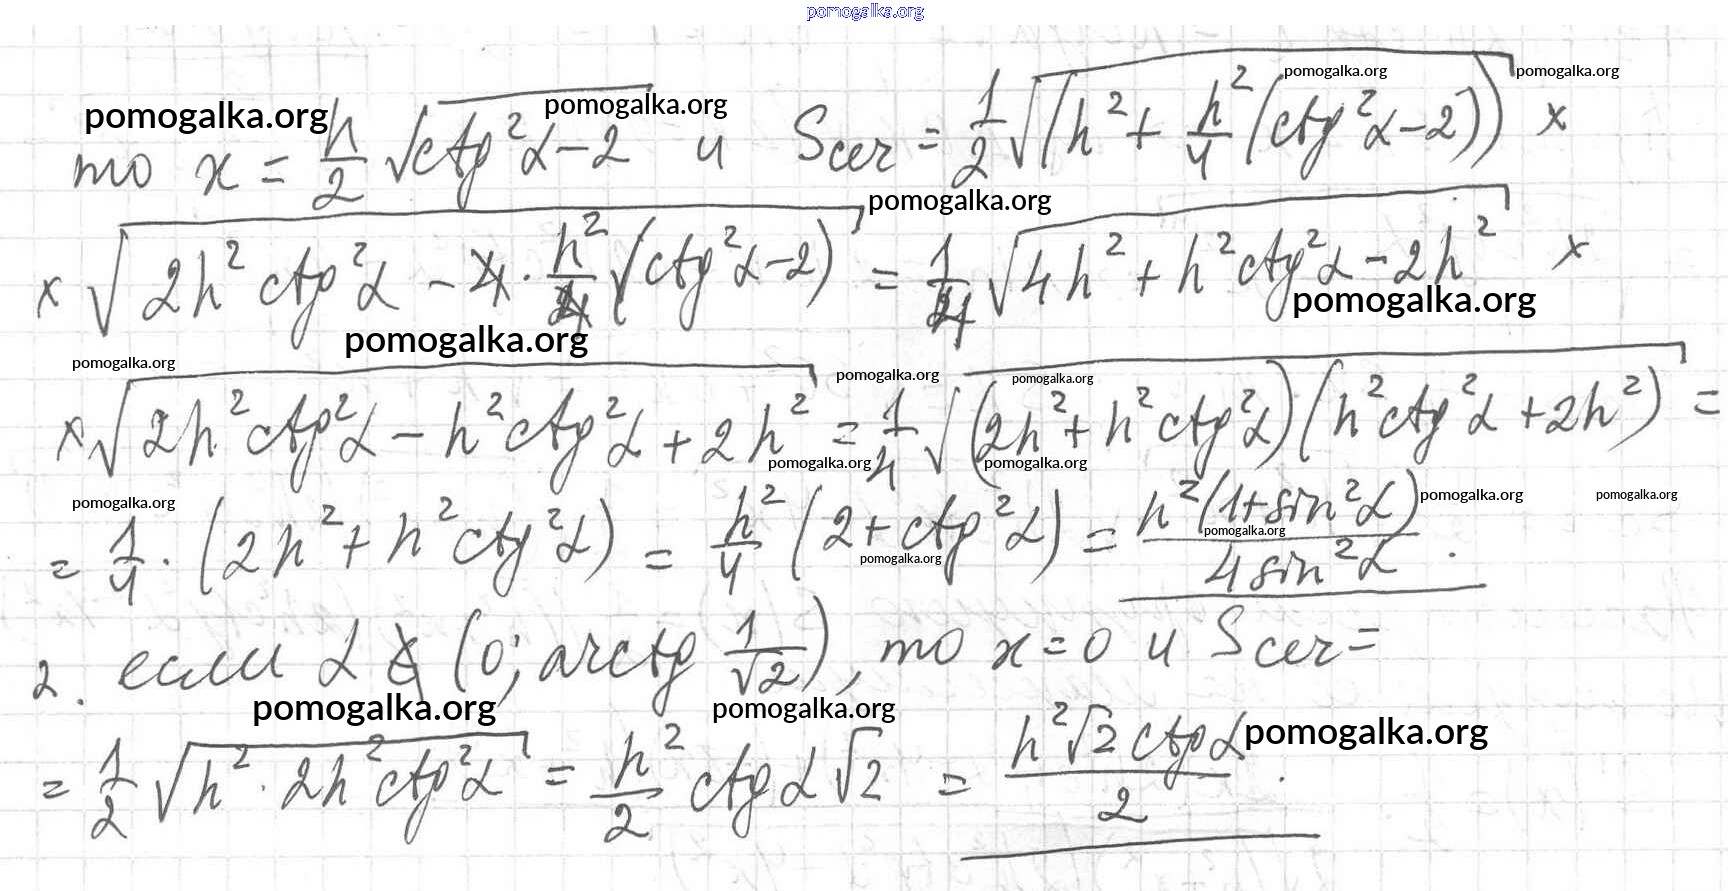 pomogalka.org
pomogalka.org pomogalka.org pomogalka.org pomogalka.org
то x = h/2 √(ctg²α − 2) и Sсеч = 1/2 √((h² + h²/4 (ctg²α − 2))) ×
pomogalka.org
× √(2h² ctg²α − 4 · h²/4 (ctg²α − 2)) = 1/4 √(4h² + h² ctg²α − 2h²) ×
pomogalka.org
pomogalka.org
pomogalka.org pomogalka.org pomogalka.org
× √(2h² ctg²α − h² ctg²α + 2h²) = 1/4 √((2h² + h² ctg²α)(h² ctg²α + 2h²)) =
pomogalka.org pomogalka.org
pomogalka.org pomogalka.org pomogalka.org
= 1/4 · (2h² + h² ctg²α) = h²/4 (2 + ctg²α) = h²(1 + sin²α)/4 sin²α .
pomogalka.org pomogalka.org
2. если α ∉ (0; arctg 1/√2), то x = 0 и Sсеч =
pomogalka.org pomogalka.org pomogalka.org
= 1/2 √(h² · 2h² ctg²α) = h²/2 ctg α √2 = h²√2 ctg α/2 .